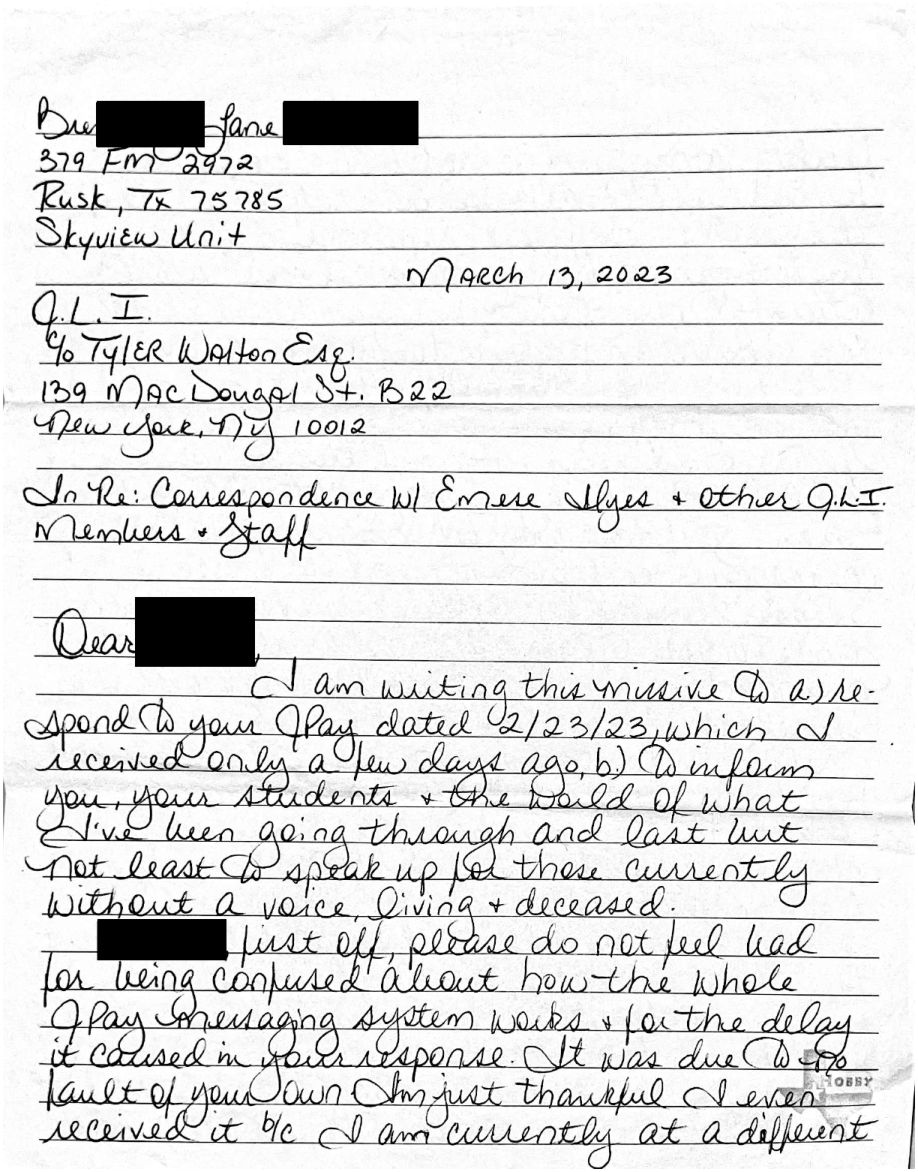 Bre Jane
379 Fm 2972
Rusk, Tx 75785
Skyview Unit
MARCH 13, 2023
J.L.I.
c/o TYLER WALTON Esq.
139 MAC Dougal St. B22
New York, Ny 10012
In Re: Correspondence w/ Emese Ilyes + other J.L.I.
Members + Staff
Dear ,
I am writing this missive to a) re-
spond to your JPay dated 2/23/23, which I
received only a few days ago, b.) to inform
you, your students + the world of what
I've been going through and last but
not least to speak up for those currently
without a voice, living + deceased.
, first off, please do not feel bad
for being confused about how the whole
JPay messaging system works + for the delay
it caused in your response. It was due to no
fault of your own I'm just thankful I even
HOBBY
received it b/c I am currently at a different